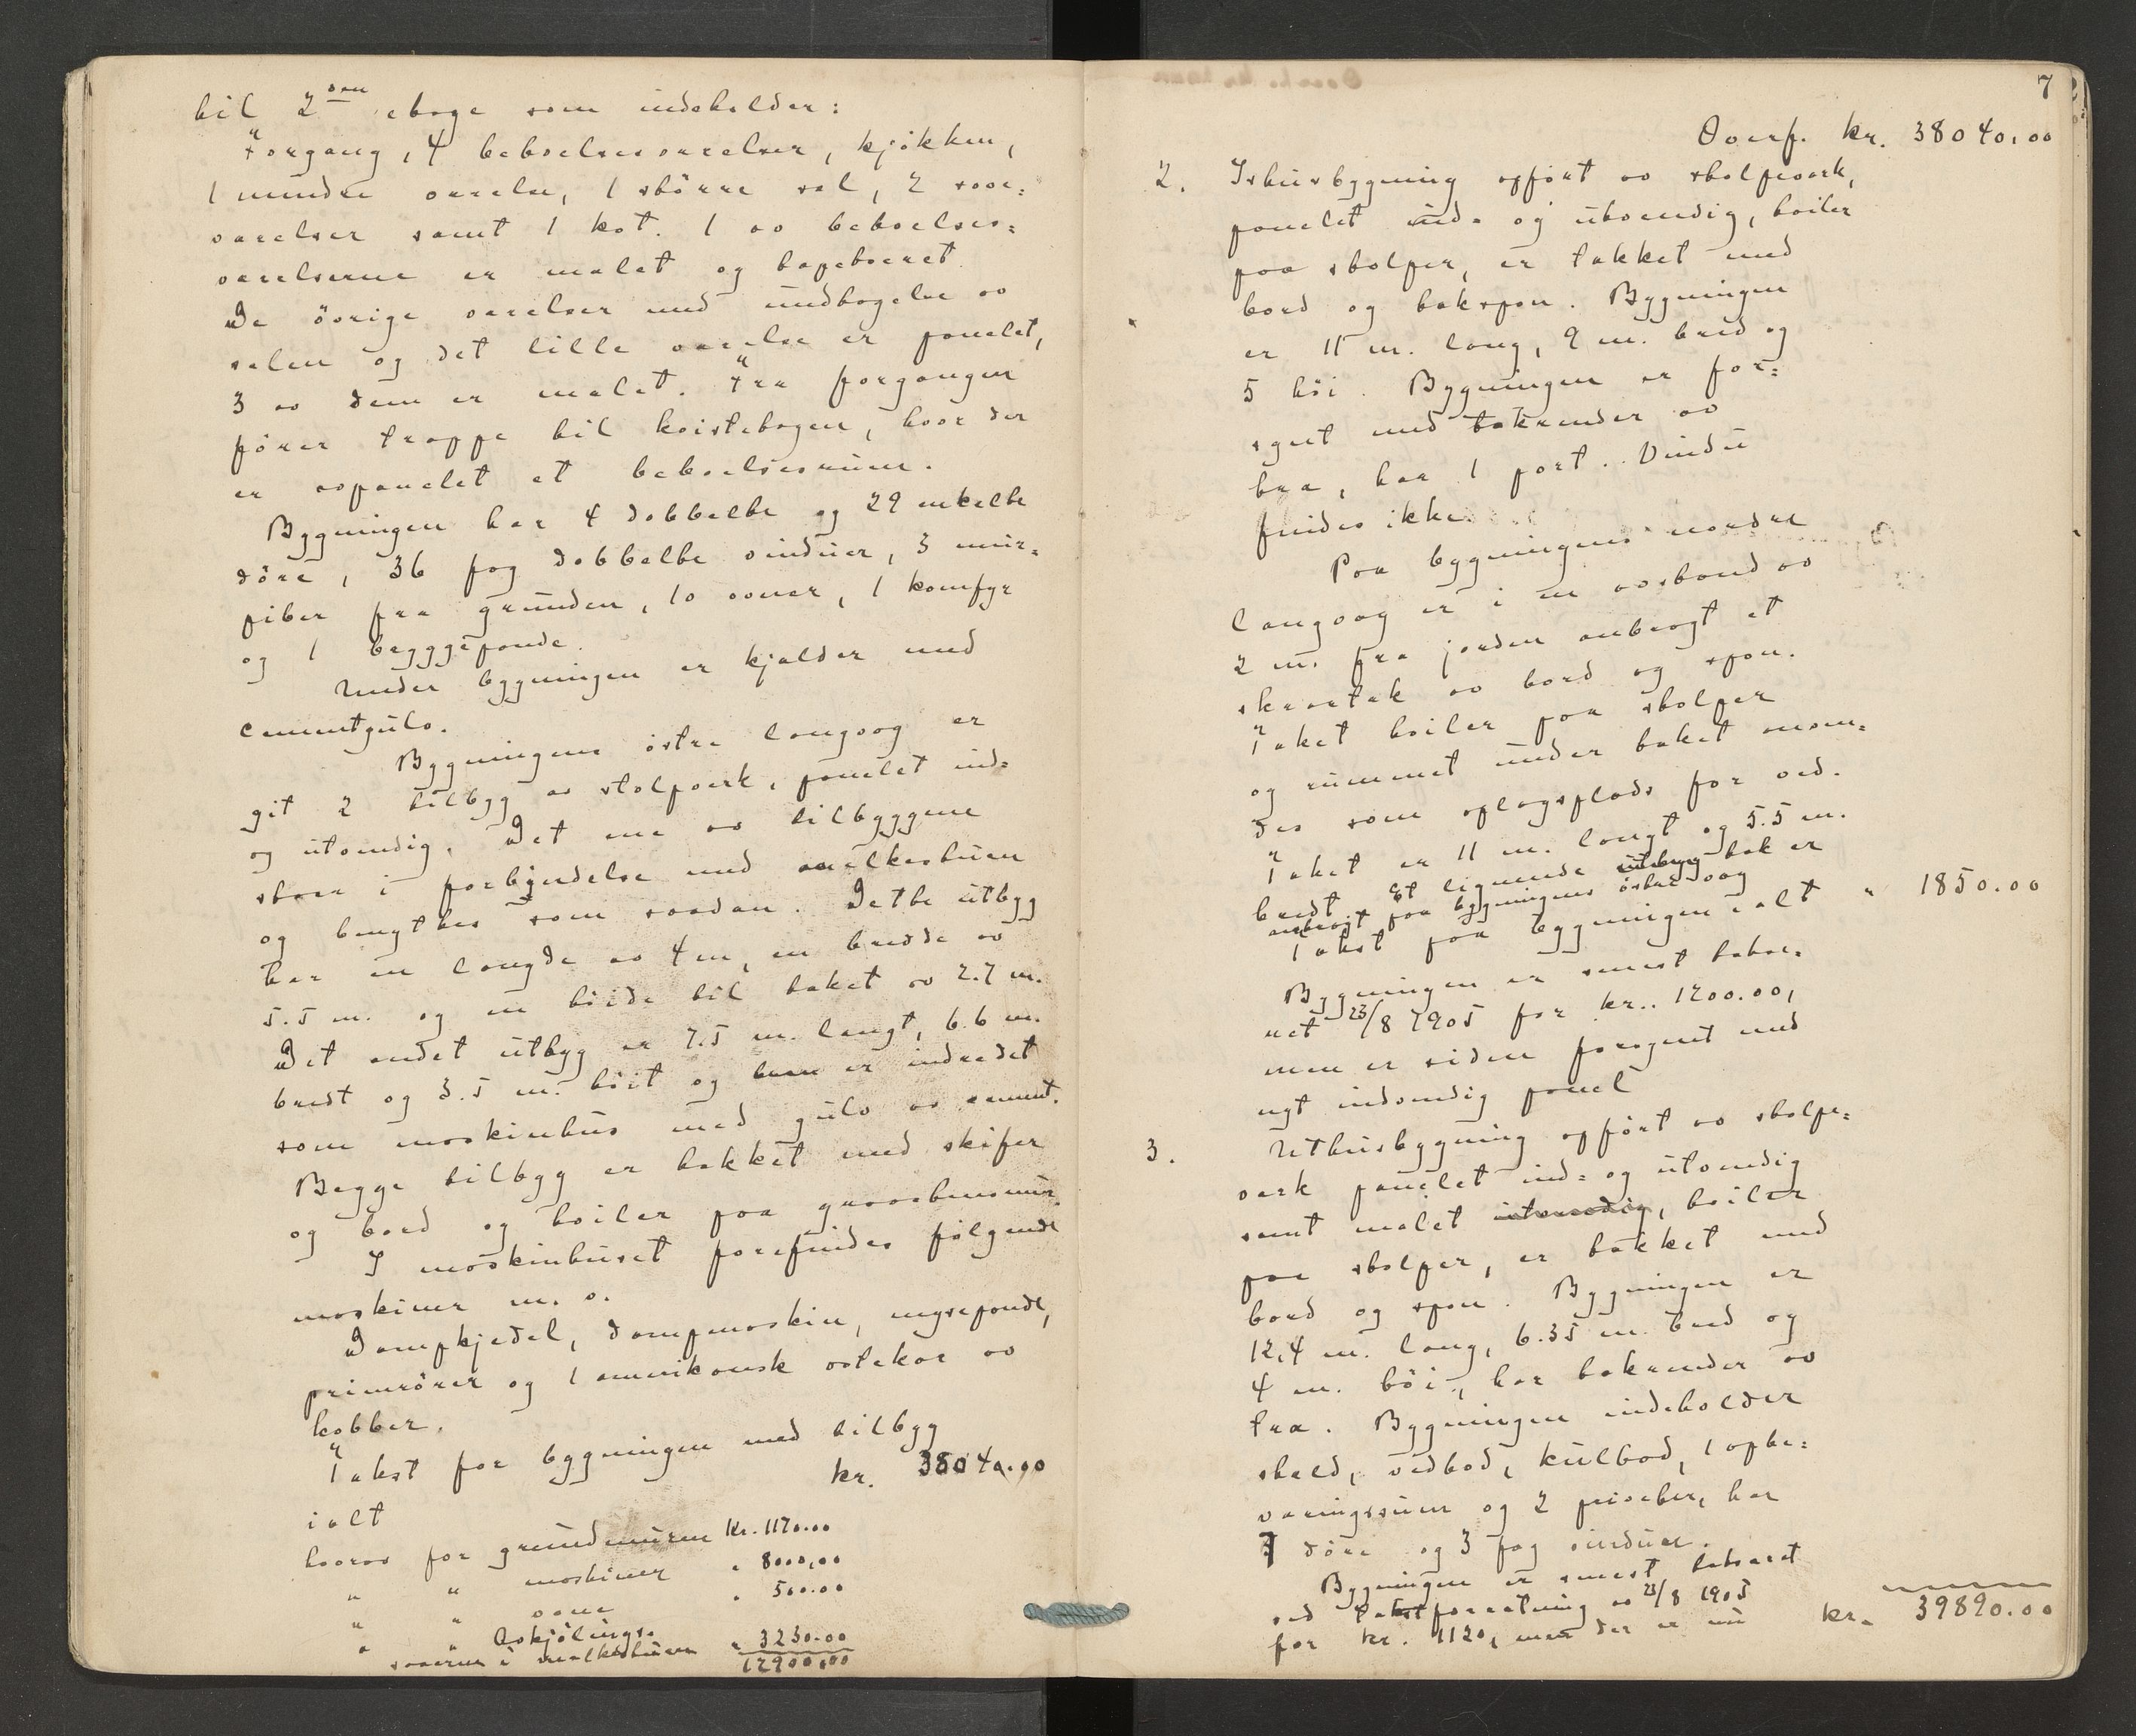 til 2den etage som indeholder:
Forgang, 4 beboelsesværelser, kjøkken,
1 mindre værelse, 1 større sal, 2 sove=
værelser samt 1 kot. 1 av beboelses=
værelserne er malet og tapetseret.
De øvrige værelser med undtagelse av
salen og det lille værelse er panelet,
3 av dem er malet. Fra forgangen
fører trappe til kvistetagen, hvor der
er avpanelet et beboelsesrum.
Bygningen har 4 dobbelte og 29 enkelte
døre, 36 fag dobbelte vinduer, 3 mur=
piber fra grunden, 10 ovner, 1 komfyr
og 1 bryggepande.
Under bygningen er kjælder med
cementgulv.
Bygningens østre langvæg er
git 2 tilbyg av stolpverk, panelet ind=
og utvendig. Det ene av tilbyggene
staar i forbindelse med melkestuen
og benyttes som saadan. Dette utbyg
har en længde av 4 m, en bredde av
5.5 m. og en høide til taket av 2.7 m.
Det andet utbyg er 7.5 m. langt, 6.6 m.
bredt og 3.5 m. høit og er indredet
som maskinhus med gulv av cement.
Begge tilbyg er tækket med skifer
og bord og hviler paa graastensmur.
I maskinhuset forefindes følgende
maskiner m. v.
Dampkjedel, dampmaskin, mysepande,
primrører og 1 amerikansk ostekar av
kobber.
Takst for bygningen med tilbyg
ialt kr. 38040.00
hvorav for grundmuren kr. 1170.00
" " maskiner " 8000,00
" " ovne " 500.00
" " Avkjølings-
sværne i melkestuen " 3230.00
12900,00
7
Overf. kr. 38040.00
2. Ishusbygning opført av stolpverk,
panelet ind= og utvendig, hviler
paa stolper, er tækket med
bord og takspon. Bygningen
er 11 m. lang, 9 m. bred og
5 høi. Bygningen er for=
synt med takrender av
træ, har 1 port. Vindu
findes ikke.
Paa bygningens nordre
langvæg er i en avstand av
2 m. fra jorden anbragt et
skraatak av bord og spon.
Taket hviler paa stolper
og rummet under taket anven=
des som oplagsplads for ved.
Taket er 11 m. langt og 5.5 m.
bredt. Et lignende utbyg tak er
anbragt paa bygningens østre væg
Takst paa bygningen ialt " 1850.00
Bygningen er senest takse=
ret 23/8 1905 for kr. 1200.00,
men er siden forsynt med
nyt indvendig panel
3. Uthusbygning opført av stolpe=
verk panelet ind= og utvendig
samt malet utvendig, hviler
paa stolper, er tækket med
bord og spon. Bygningen er
12,4 m. lang, 6.35 m. bred og
4 m. høi, har takrender av
træ. Bygningen indeholder
stald, vedbod, kulbod, 1 opbe=
varingsrum og 2 priveter, har
7 døre og 3 fag vinduer.
Bygningen er senest takseret
ved takstforretning av 23/8 1905
for kr. 1120, men der er nu kr. 39890.00